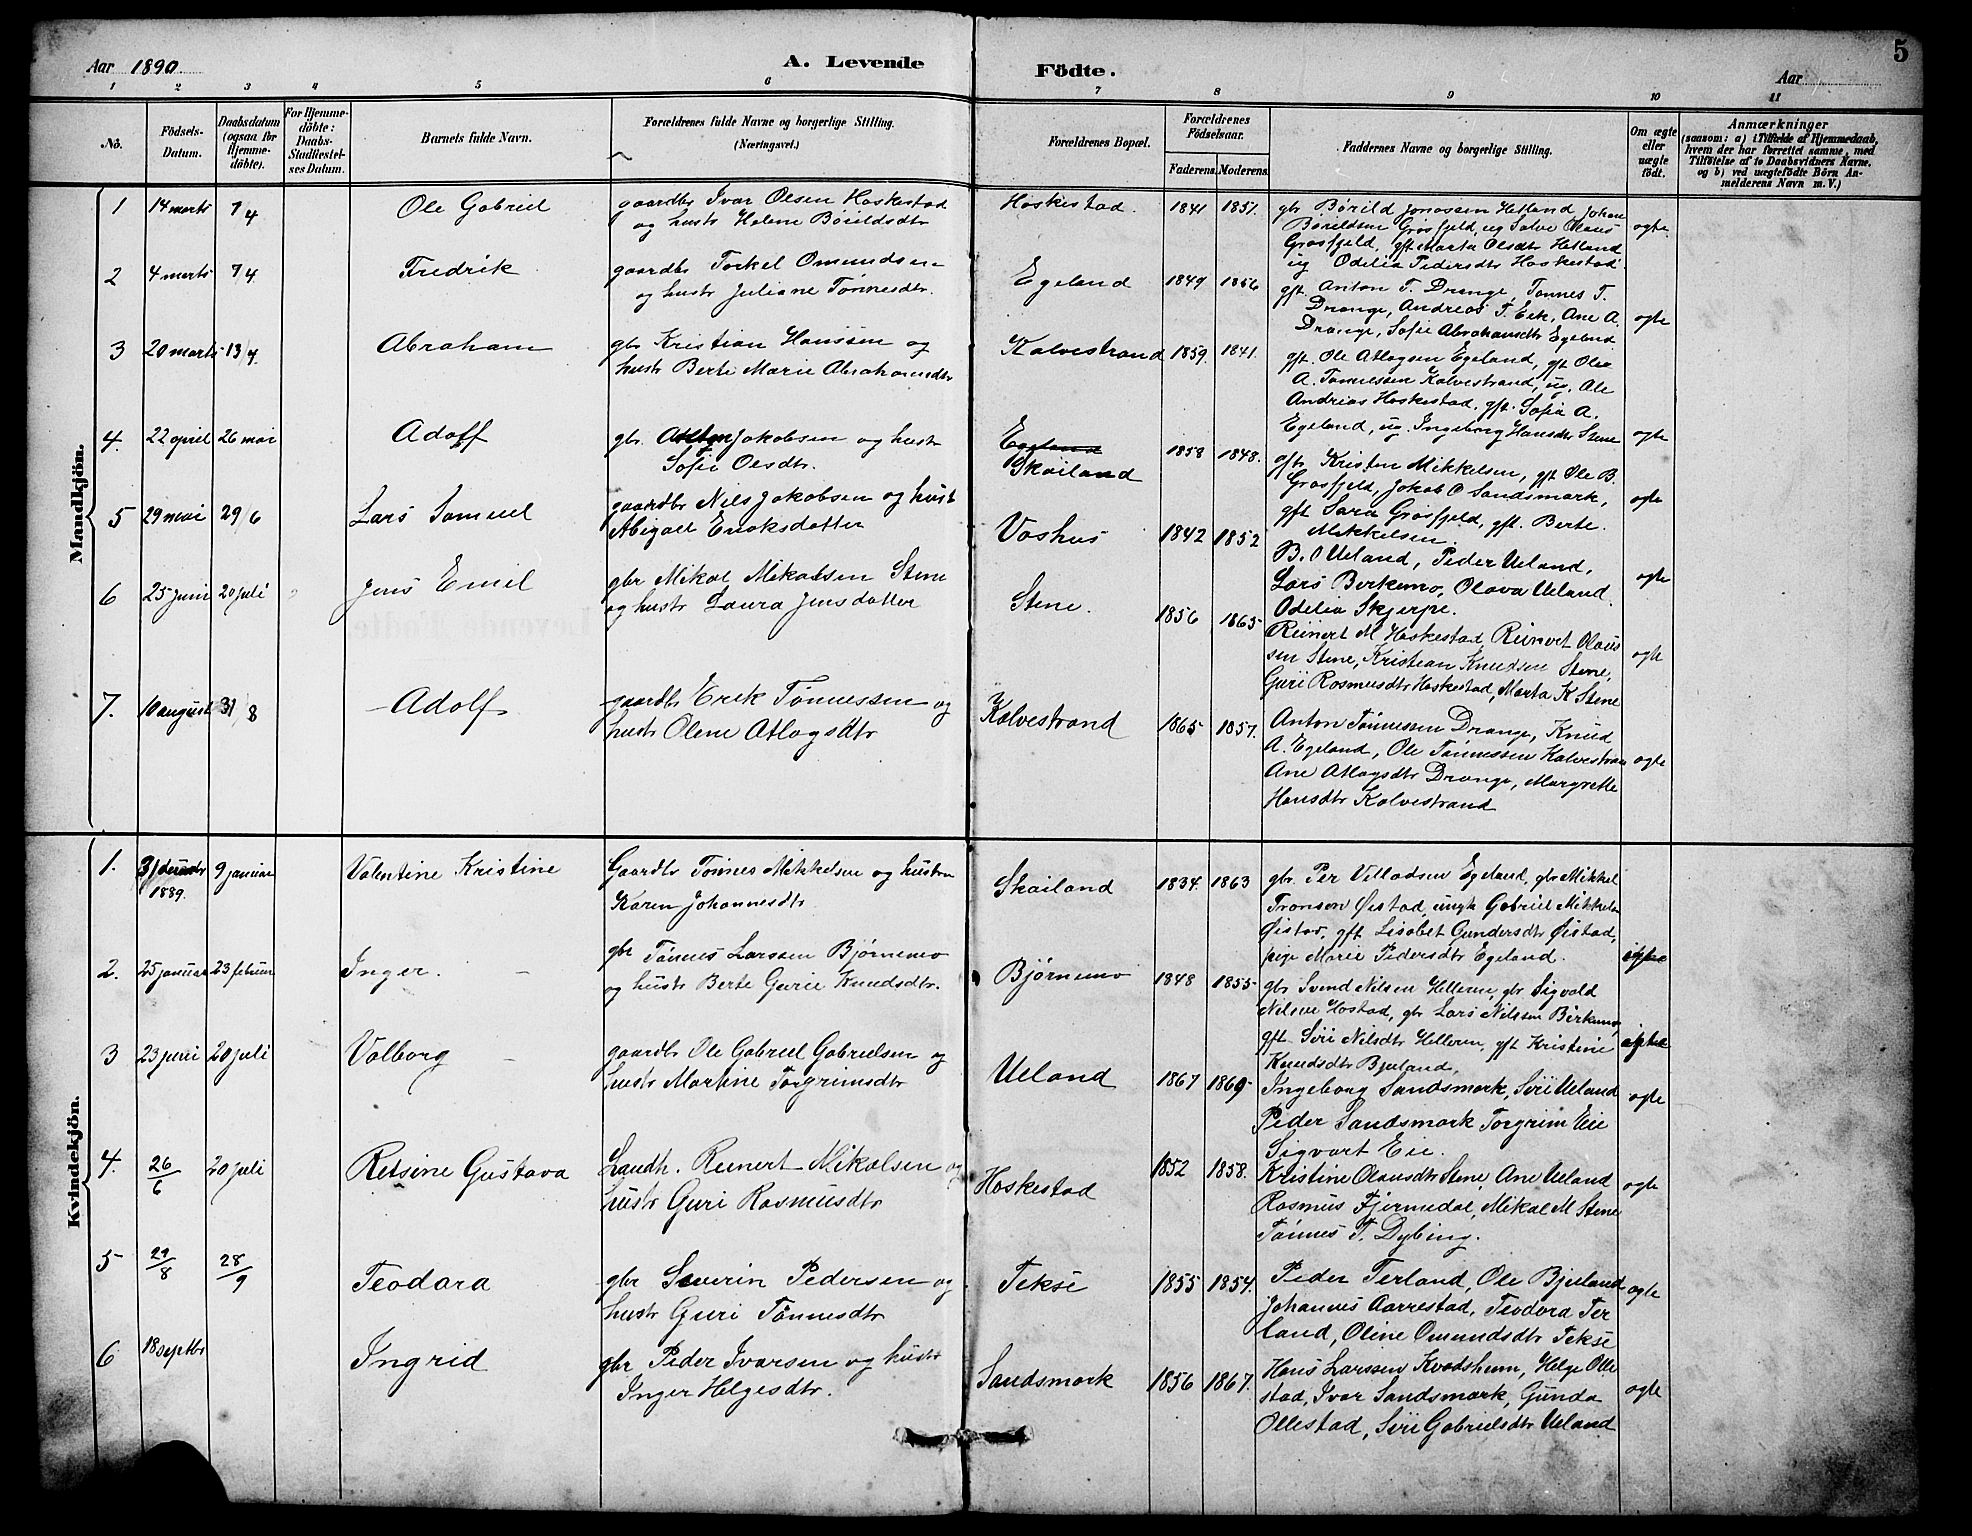 Aar 1890. A. Levende Födte. Aar 5
1 2 3 4 5 6 7 8 9 10 11
No.
Födsels-Datum.
Daabsdatum (ogsaa for Hjemme-döbte).
For Hjemme-döbte: Daabs-Stadfæstel-ses Datum.
Barnets fulde Navn.
Forældrenes fulde Navne og borgerlige Stilling.
(Næringsvei.)
Forældrenes Bopæl.
Forældrenes Födselsaar.
Faderens. Moderens.
Faddernes Navne og borgerlige Stilling.
Om ægte eller uægte födt.
Anmærkninger
(saasom: a) i Tilfælde af Hjemmedaab,
hvem der har forrettet samme, med
Tilföielse af to Daabsvidners Navne.
og b) ved uægtefödte Börn An-
melderens Navn m. V.)
Mandkjön.
1 14 marts 7/4 Ole Gabriel
gaardbr Ivar Olsen Hoskestad
og hustr Helene Börildsdtr
Hoskestad. 1841 1851.
gbr Börild Jonassen Hetland, Johan
Börildsen Grosfjeld, ug Salve Olaus
Grosfjeld, gft Marta Olsdtr Hetland
ug Odelia Pedersdtr Hoskestad.
ægte
2 4 marts 7/4. Fredrik
gaardbr Torkel Omundsen
og hustr Juliane Tönnesdtr.
Egeland 1849 1856
gft. Anton T. Drange, Tönnes T.
Drange, Andreas T. Eik, Ane A.
Drange, Sofie Abrahamsdtr Egeland
ægte
3 20 marts 13/4. Abraham
gbr Kristian Hanssen og
hustr Berte Marie Abrahamsdtr
Kalvestrand 1859. 1841.
gft. Ole Atlagsen Egeland, gft Ole
A. Tönnessen Kalvestrand, ug. Ole
Andreas Hoskestad, gft. Sofia A.
Egeland, ug. Ingeborg Hansdtr Stene
ægte
4. 22 april 26 mai Adolf
gbr. Jakobsen og hustr
Sofie Olsdtr.
Egeland
Skailand
1858 1848.
gft. Kristen Mikkelsen, gft Ole B.
Grosfjeld, Jakob O Sandsmark,
gft Sara Grosfjeld, gft. Berte.
Mikkelsen.
ægte
5 29 mai 29/6 Lars Samuel
gaardbr Nils Jakobsen og hust
Abigael Eriksdatter
Vashus 1842 1852
B. O Ueland, Peder Ueland,
Lars Berkemo, Olava Ueland.
Odelia Skjerpe.
ægte
6 25 juni 20 juli Jens Emil
gbr Mikal Mikalsen Stene
og hustr Laura Jensdatter
Stene. 1856 1865
Reinert M Hoskestad Reinert Olaus
sen Stene, Kristian Knudsen Stene,
Guri Rasmusdtr Hoskestad, Marta K Stene
ægte
7. 10 august 31/8 Adolf
gaardbr Erik Tönnessen og
hustr Olene Atlagsdtr
Kalvestrand 1865 1857.
Anton Tönnessen Drange, Knud
A. Egeland, Ole Tönnessen Kalvestran
Ane Atlagsdtr Drange, Margrethe
Hansdtr Kalvestrand
ægte
Kvindekjön.
1. 31 1889. 9 januar Valentine Kristine
Gaardbr Tönnes Mikkelsen og hustru
Karen Johannesdtr.
Skailand 1834. 1863
gbr. Per Villadsen Egeland, gbr Mikkel
Tronsen Øistad, ungk Gabriel Mikkelsn
Øistad, gft Lisabet Gundersdtr Øistad,
pige Marie Pedersdtr Egeland.
ægte
2. 25 januar 23 februar Inger.
gbr Tönnes Larssen Björnemo
og hustr Berte Gurie Knudsdtr.
Björnemo 1848 1855
gbr Svend Nilsen Helleren, gbr Sigvald
Nilsen Hastad, gbr Lars Nilssen Birkemo,
gft Siri Nilsdtr Helleren, gft Kristine
Knudsdtr Bjuland,
ægte
3 23 juni 20 juli Valborg
gaardbr Ole Gabriel Gabrielsen og
hustr Martine Torgrimsdtr
Ueland 1867 1869
Ingeborg Sandsmark, Siri Ueland
Peder Sandsmark Torgrim Eie
Sigvart Eie.
ægte
4. 26/6 20 juli Retsine Gustava
Landh. Reinert Mikalsen og
hustr Guri Rasmusdtr
Hoskestad 1852 1858.
Kristine Olausdtr Stene, Ane Ueland
Rasmus Fjermedal, Mikal M Stene
Tönnes T. Dybing.
ægte
5 29/8 28/9 Teodora
gbr Severin Pedersen og
hustr Guri Tönnesdtr
Tekse 1855 1854.
Peder Terland, Ole Bjuland
Johannes Aarrestad, Teodora Ter
land, Oline Omundsdtr Tekse
ægte
6 18 septbr Ingrid
gbr Peder Ivarsen og hustr
Inger Helgesdtr.
Sandsmark 1856 1867.
Hans Larssen Kvadsheim, Helge Olle
stad, Ivar Sandsmark, Gunda
Ollestad, Siri Gabrielsdtr Ueland
ægte